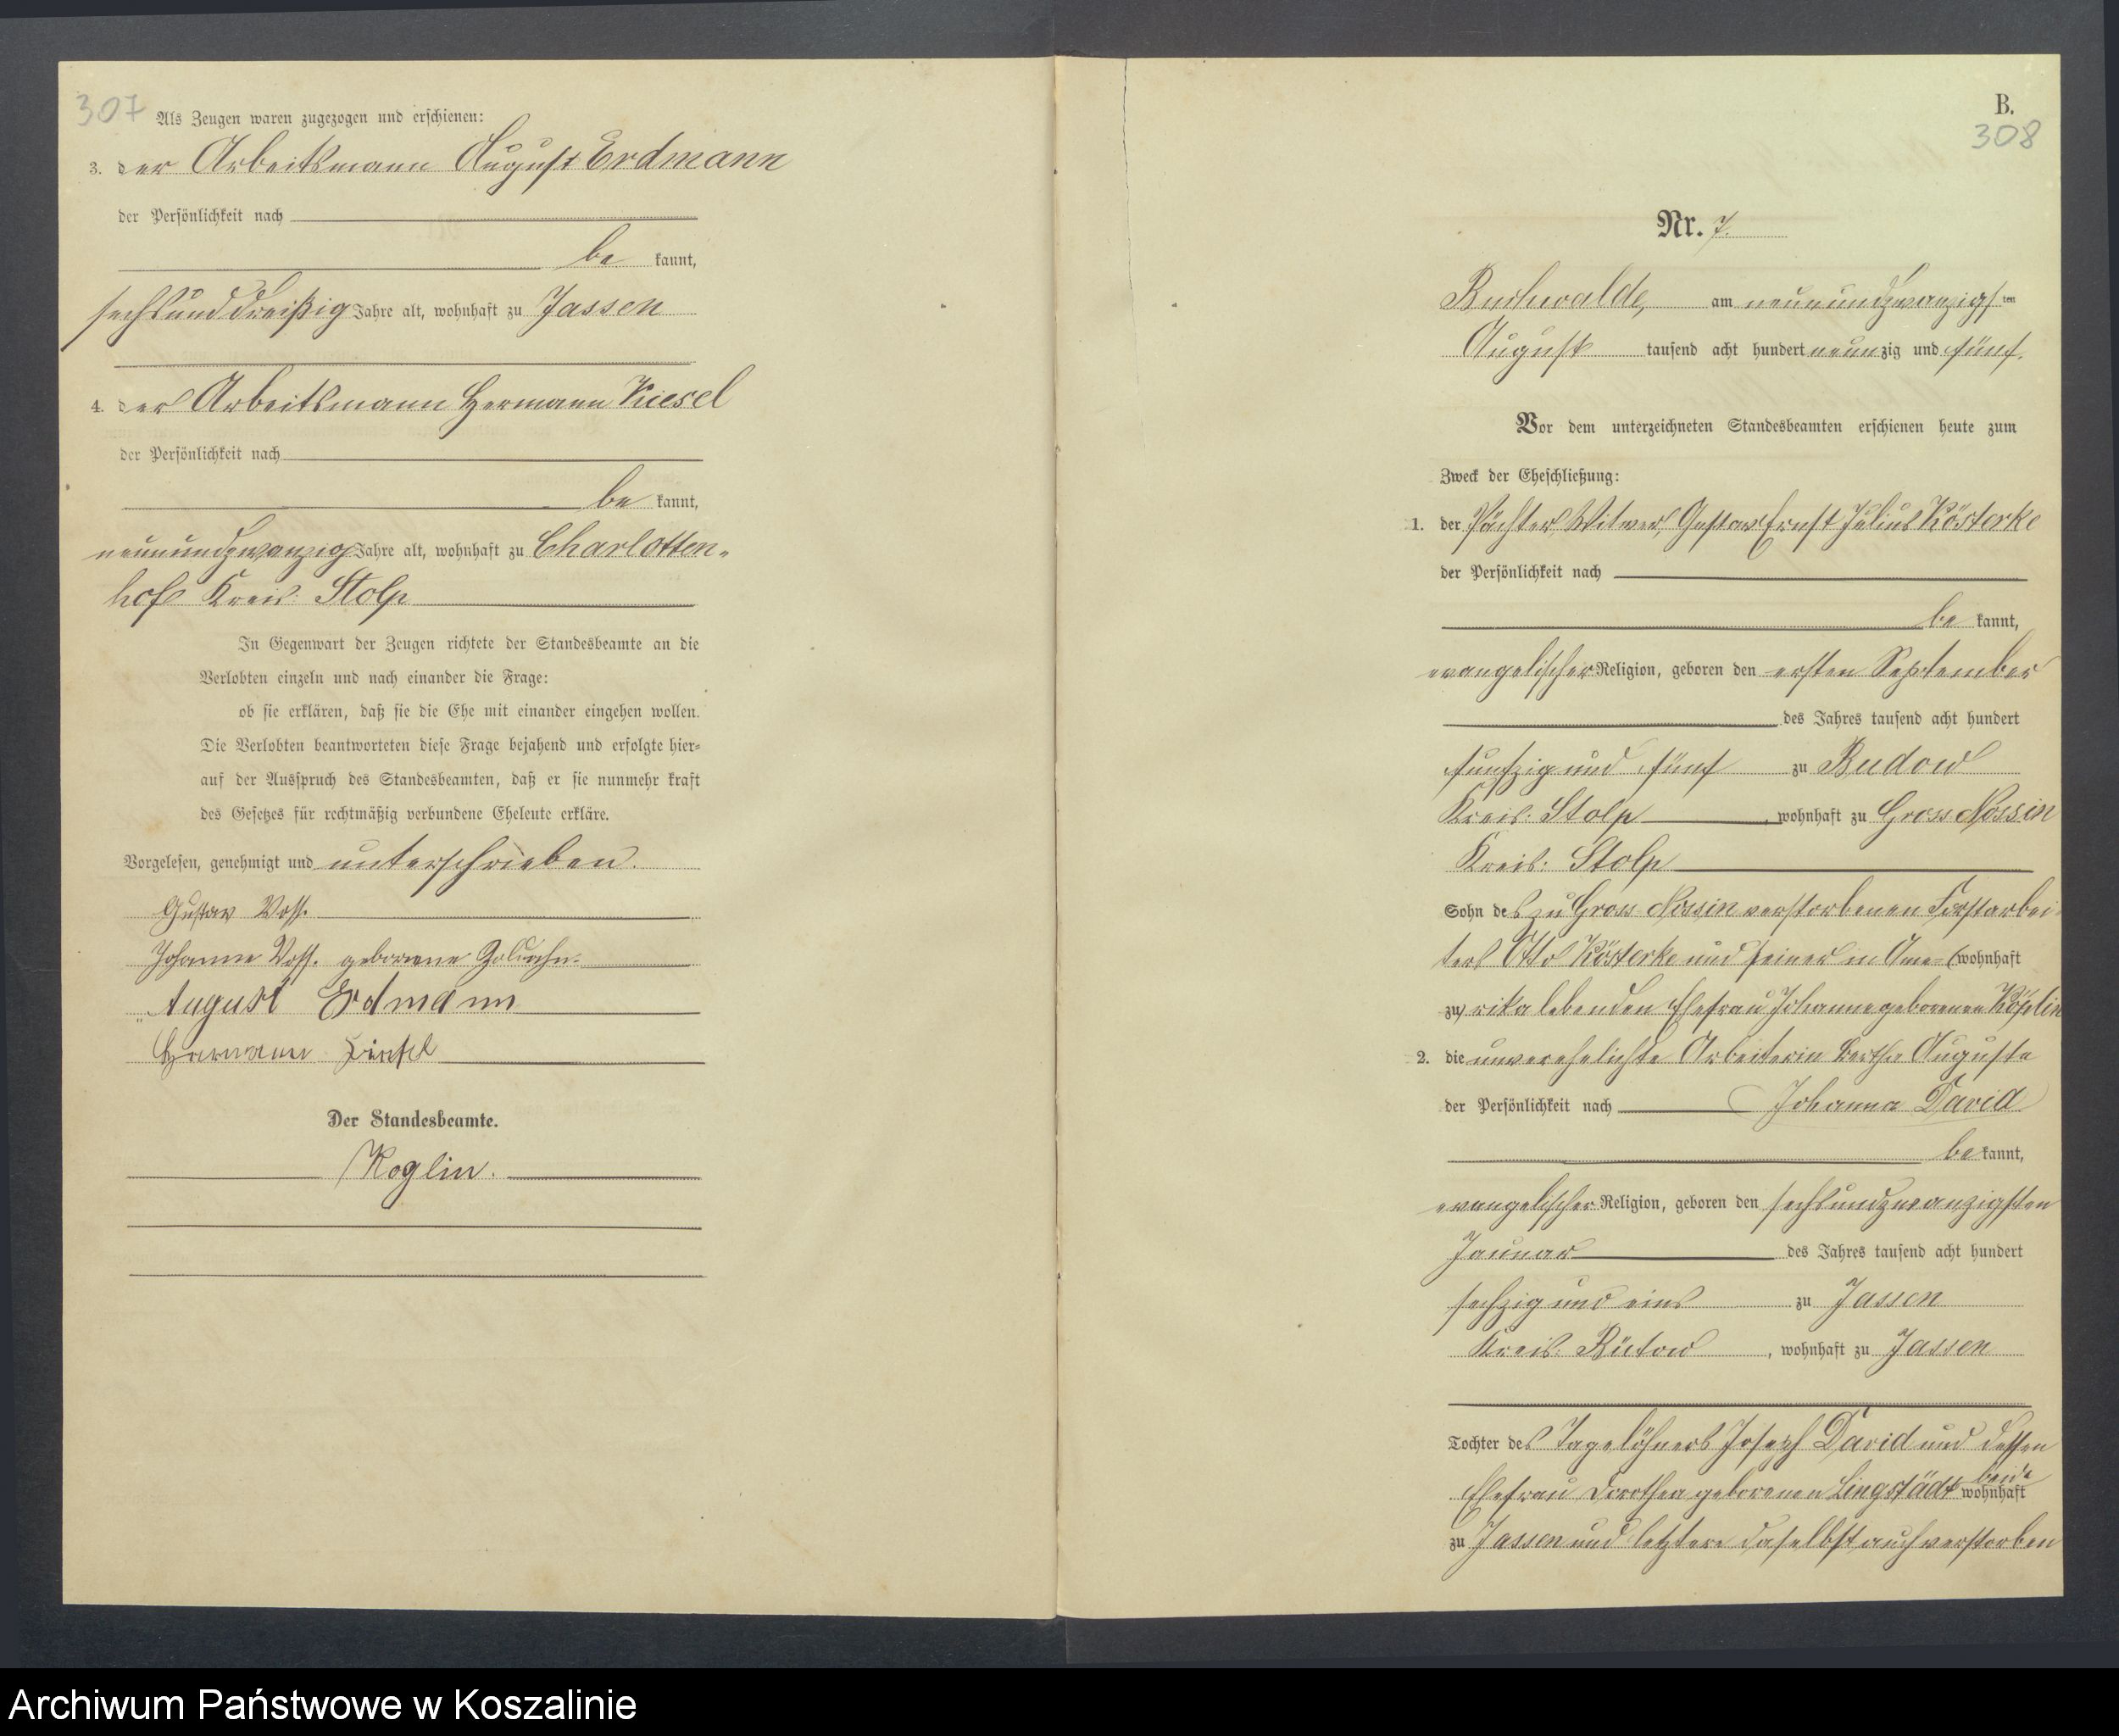 307
Als Zeugen waren zugezogen und erschienen:
3. der Arbeitsmann August Erdmann
der Persönlichkeit nach
be kannt,
sechsunddreißig Jahre alt, wohnhaft zu Jassen
4. der Arbeitsmann Hermann Kiesel
der Persönlichkeit nach
be kannt,
neunundzwanzig Jahre alt, wohnhaft zu Charlotten-
hof Kreis: Stolp
In Gegenwart der Zeugen richtete der Standesbeamte an die
Verlobten einzeln und nach einander die Frage:
ob sie erklären, daß sie die Ehe mit einander eingehen wollen.
Die Verlobten beantworteten diese Frage bejahend und erfolgte hier-
auf der Ausspruch des Standesbeamten, daß er sie nunmehr kraft
des Gesetzes für rechtmäßig verbundene Eheleute erkläre.
Vorgelesen, genehmigt und unterschrieben.
Gustav Voss.
Johanne Voss. geborene
August Erdmann
Hermann
Der Standesbeamte.
Roglin.
B.
308
Nr. 7.
Buchwalde, am neunundzwanzigsten
August tausend acht hundert neunzig und fünf.
Vor dem unterzeichneten Standesbeamten erschienen heute zum
Zweck der Eheschließung:
1. der Pächter, Witwer, Gustav Ernst Julius Kösterke
der Persönlichkeit nach
be kannt,
evangelischer Religion, geboren den ersten September
des Jahres tausend acht hundert
funfzig und fünf zu Budow
Kreis: Stolp, wohnhaft zu Gross Nossin
Kreis: Stolp
Sohn des zu Gross Nossin verstorbenen Forstarbei-
ters Otto Kösterke und seiner in Ame- (wohnhaft
zu) rika lebenden Ehefrau Johanne geborenen Köplin
2. die unverehelichte Arbeiterin Bertha Auguste
der Persönlichkeit nach Johanna David
be kannt,
evangelischer Religion, geboren den sechsundzwanzigsten
Januar des Jahres tausend acht hundert
sechzig und eins zu Jassen
Kreis: Bütow, wohnhaft zu Jassen
Tochter des Tagelöhners Joseph David und dessen
Ehefrau Dorothea geborenen Lingstädt beide wohnhaft
zu Jassen und letztere daselbst auch verstorben
Archiwum Państwowe w Koszalinie